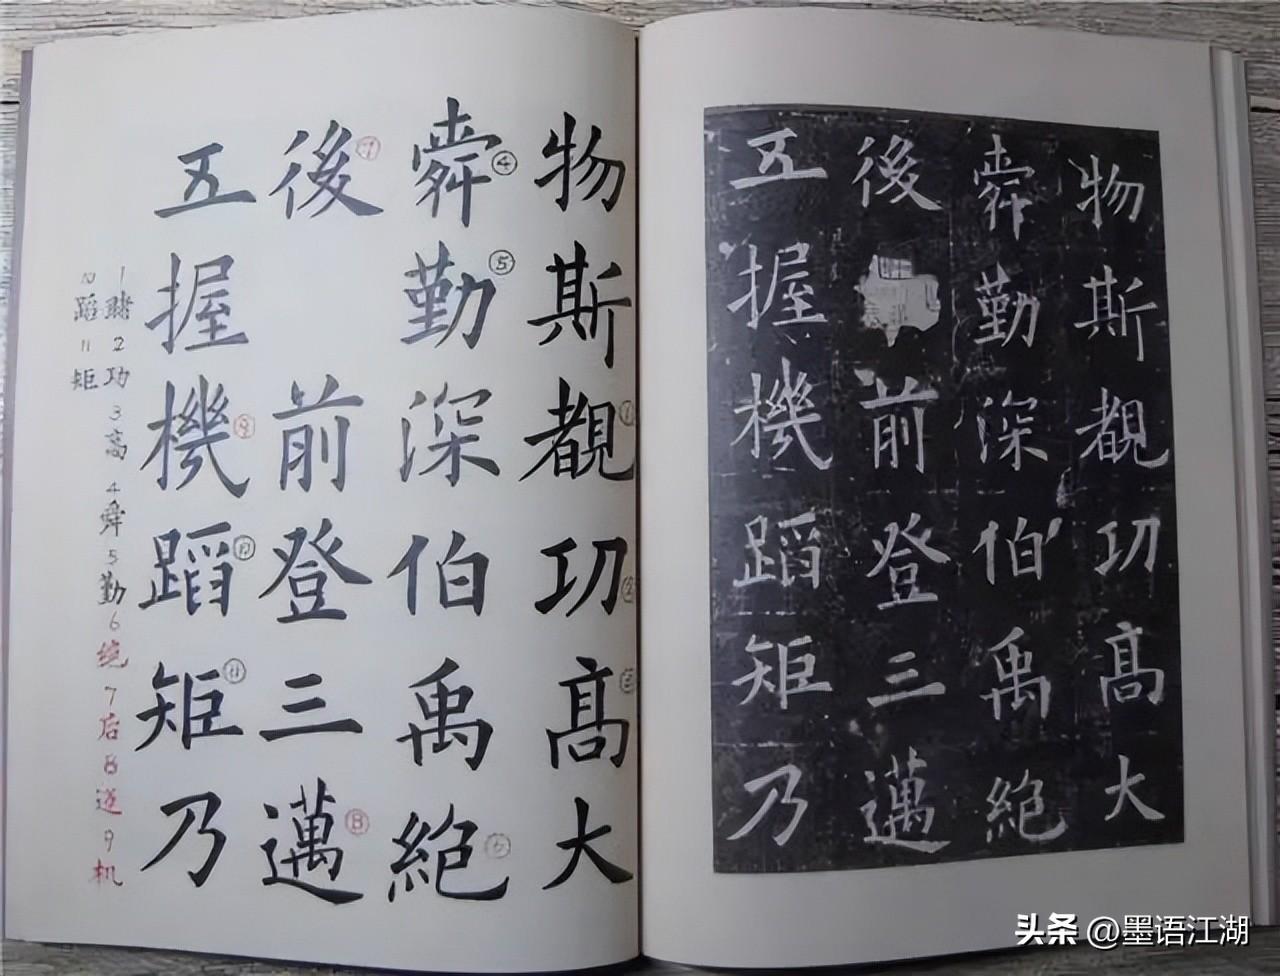 物斯覩①㓛②髙③大
舜④勤⑤深伯禹絶⑥
後⑦前登三邁⑧
五握機⑨蹈⑩矩⑪乃
1睹2功3高4舜5勤6 7后8 9机
10蹈11矩
物斯覩㓛髙大
舜勤深伯禹絶
後前登三邁
五握機蹈矩乃
头条 @墨语江湖